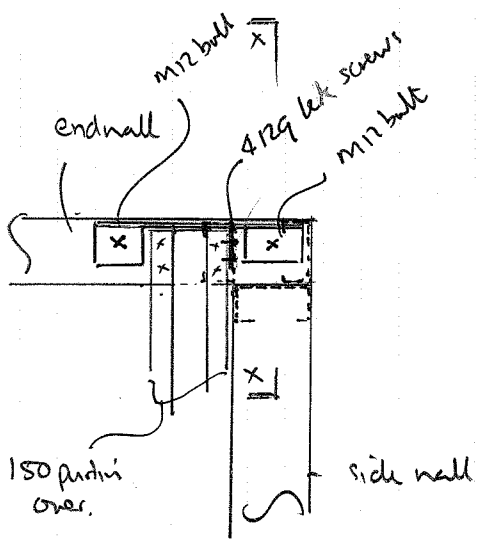 M12 bolt
endwall
4 12g tek screws
M12 bolt
150 purlins
over.
side wall